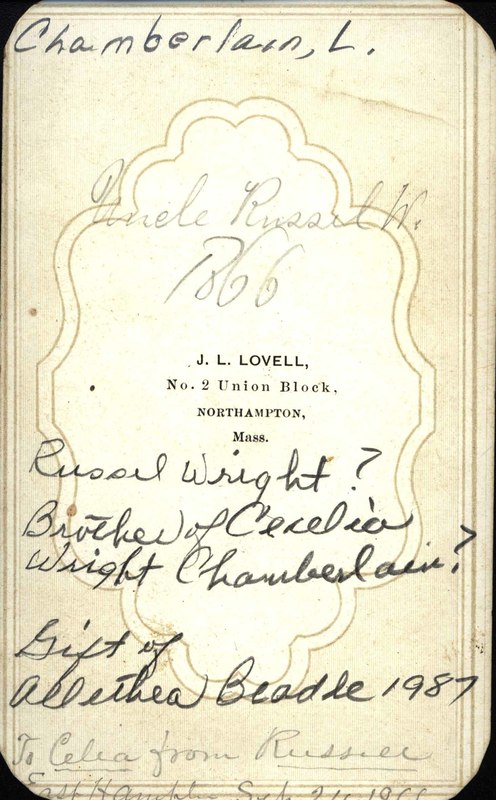 Chamberlain, L.
Uncle Russel W.
1866
J. L. LOVELL,
No. 2 Union Block,
NORTHAMPTON,
Mass.
Russel Wright ?
Brother of Cecelia
Wright Chamberlain ?
Gift of
Beadle 1987
To Celia from Russell
East Hampton Sept